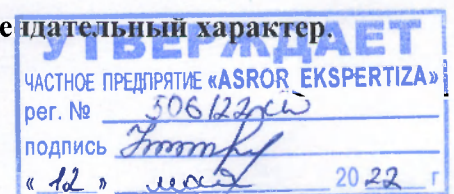 е ндательный характер.
УТВЕРЖДАЕТ
ЧАСТНОЕ ПРЕДПРЯТИЕ «ASROR EKSPERTIZA»
рег. № 506/22
подпись
« 12 » мая 20 22 г